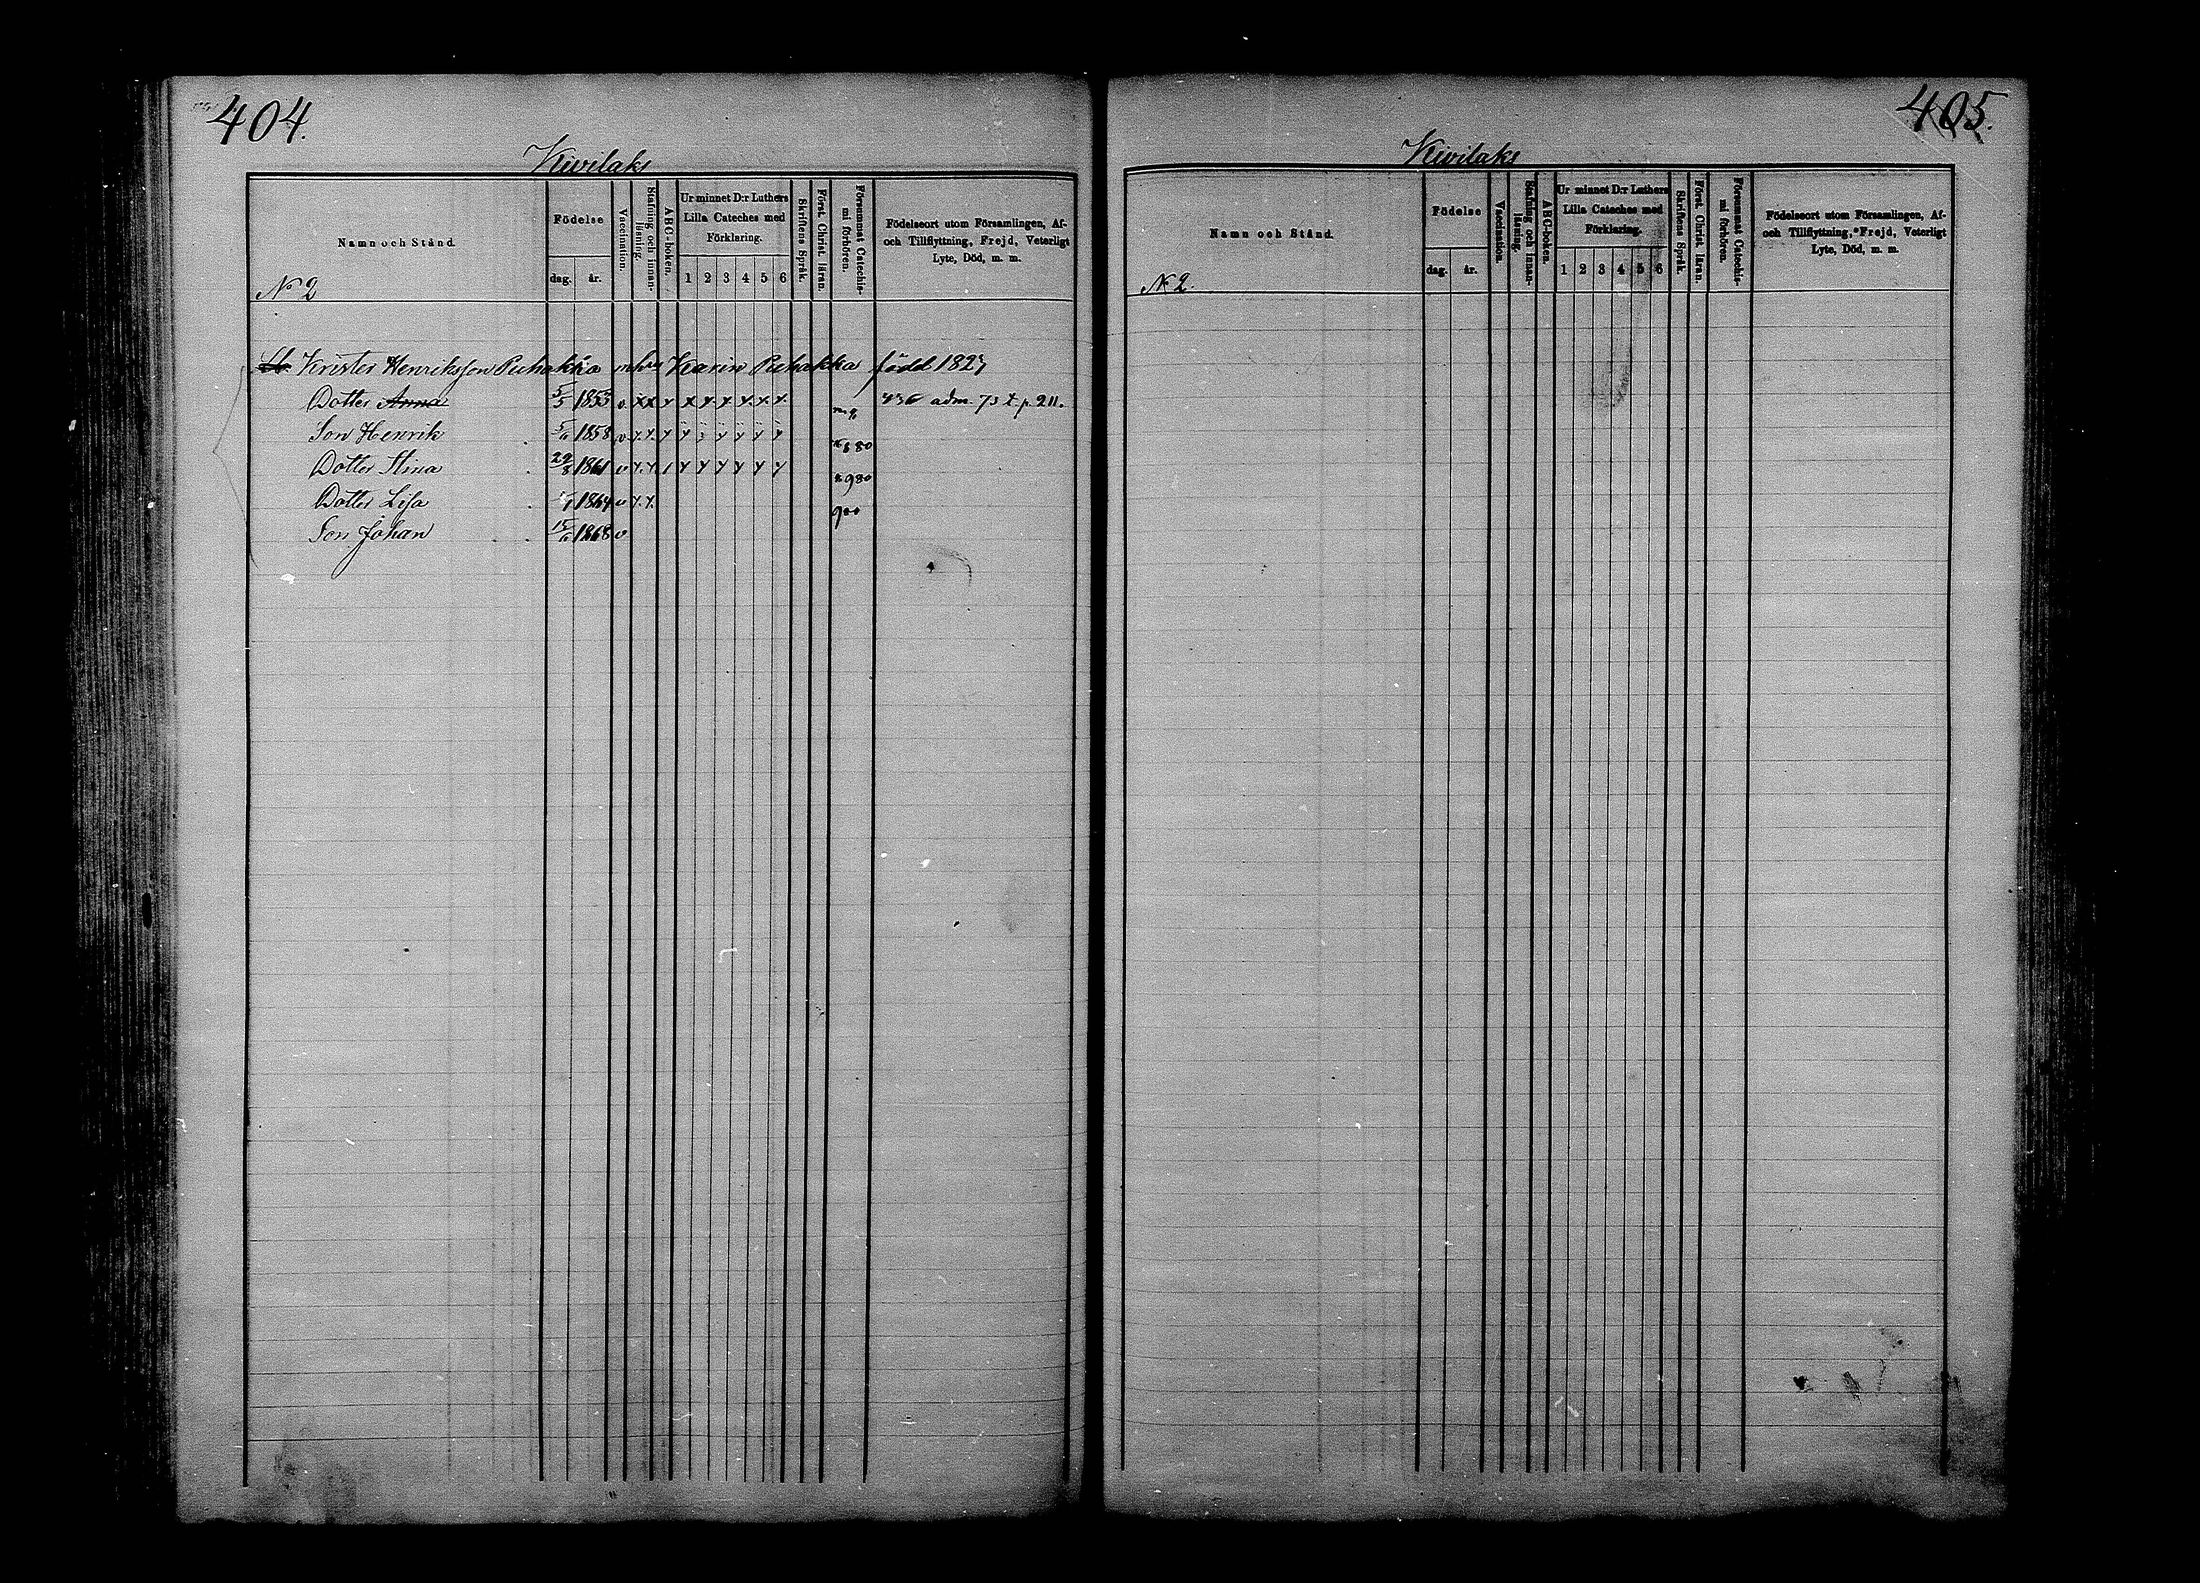 404.
Kivilaks
Namn och Stånd.
Födelse
dag. år.
Vaccination.
Stafning och innan-
läsning.
ABC-boken.
Ur minnet D:r Luthers
Lilla Cateches med
Förklaring.
1 2 3 4 5 6
Skriftens Språk.
Först. Christ. läran.
Försummat Catechis-
mi förhören.
Födelseort utom Församlingen, Af-
och Tillflyttning, Frejd, Veterligt
Lyte, Död, m. m.
No 2
Krister Henriksson Puhakka m hu Karin Puhakka född 1827
Dotter Anna 5/5 1853 v. x x y x y y y. x. y. adm. 73 t p. 211.
Son Henrik 1858 v. y. y. y y y y y y
Dotter Stina 29/8 1861 v y. y. / y y y y y y 980
Dotter Lisa 1864 v y. y.
Son Johan 15/6 1868 v
405.
Kivilaks
Namn och Stånd.
Födelse
dag. år.
Vaccination.
Stafning och innan-
läsning.
ABC-boken.
Ur minnet D:r Luthers
Lilla Cateches med
Förklaring.
1 2 3 4 5 6
Skriftens Språk.
Först. Christ. läran.
Försummat Catechis-
mi förhören.
Födelseort utom Församlingen, Af-
och Tillflyttning, Frejd, Veterligt
Lyte, Död, m. m.
No 2.